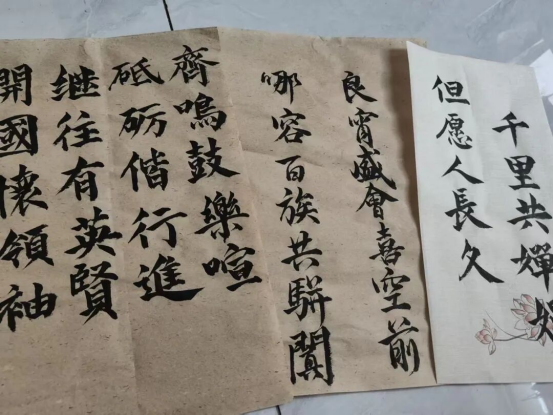 開國懷領袖
继往有英賢
砥砺偕行進
齊鳴鼓樂喧
哪容百族共駢闐
良宵盛會喜空前
但愿人長久
千里共嬋